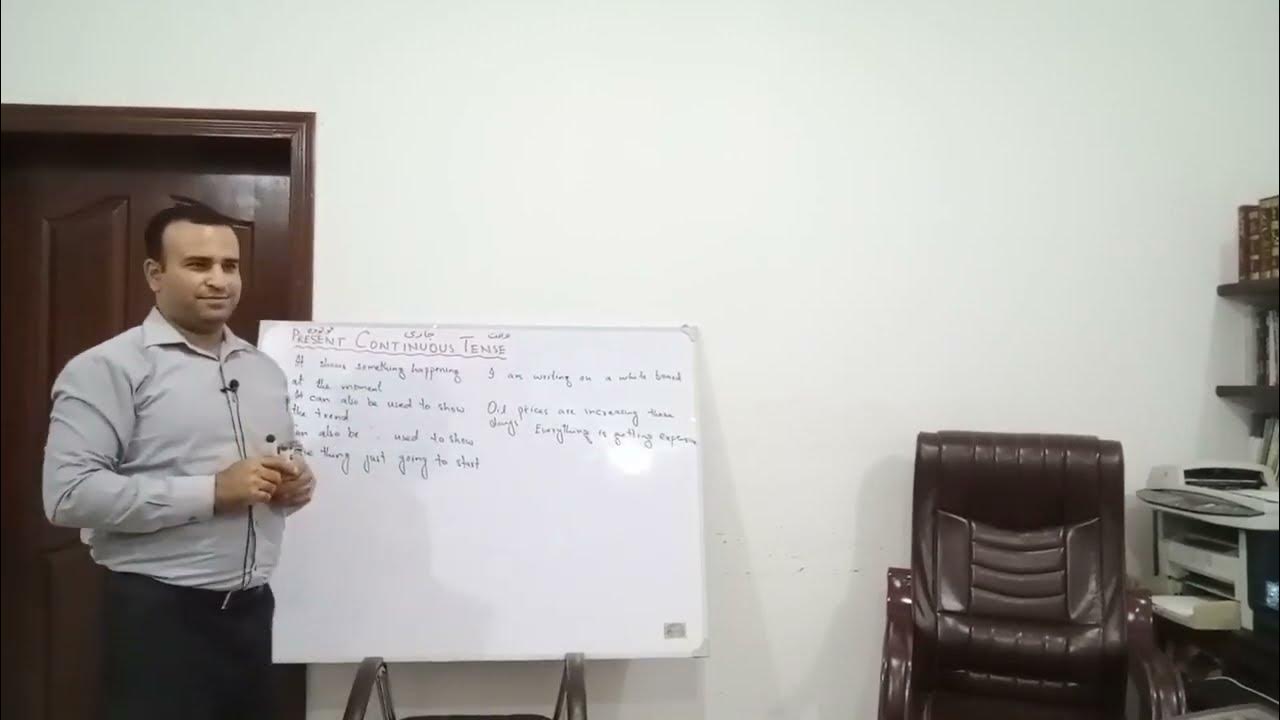 جاری حالت
PRESENT CONTINUOUS TENSE
It shows something happening
at the moment
It can also be used to show
the trend
can also be used to show
thing just going to start
I am writing on a white board
Oil prices are increasing these
days Everything is getting expensive